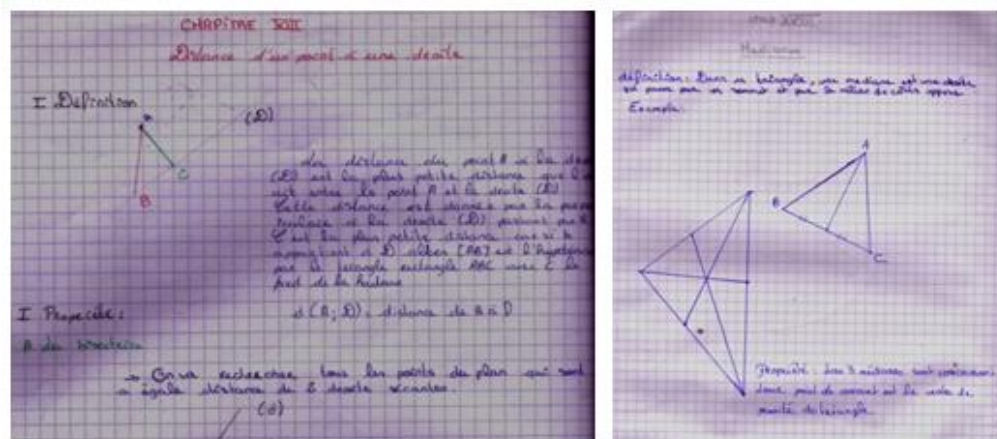 CHAPITRE XVII
Distance d'un point à une droite
I Définition
A
(D)
C
B
La distance du point A à la
(D) est la plus petite distance que
soit entre le point A et la droite (D)
Cette distance est donnée par la
à la droite (D) passant par
C'est la plus petite distance car si
appartient à D alors [AB] est l'hypoténuse
le triangle rectangle ABC avec C le
pied de la hauteur
d (A; D) : distance de A à D
I Propriété :
→ On va rechercher tous les points du plan qui sont
à égale distance de 2 droites sécantes
(d)
définition : Dans un triangle, une médiane est une droite
qui passe par un sommet et par le milieu du côté opposé
Exemple :
A
B
C
Propriété : Les 3 médianes sont concourantes
leur point de concours est le centre de
gravité du triangle